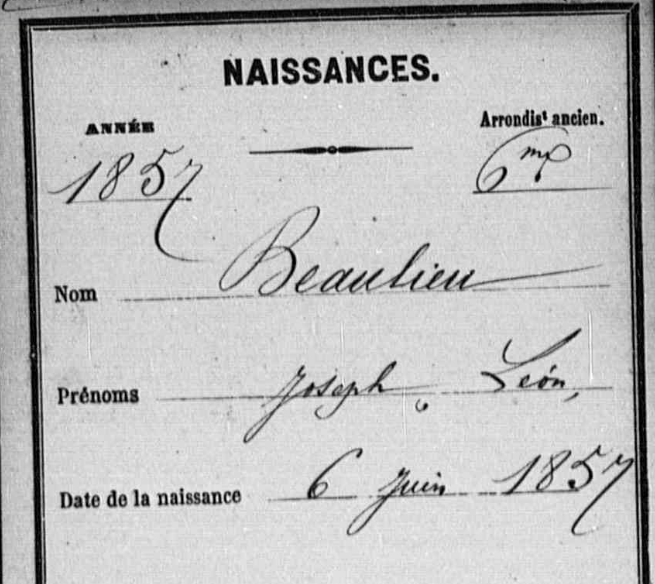 NAISSANCES.
ANNÉE Arrondist ancien.
1857 6me
Nom Beaulieu
Prénoms Joseph, Léon,
Date de la naissance 6 Juin 1857